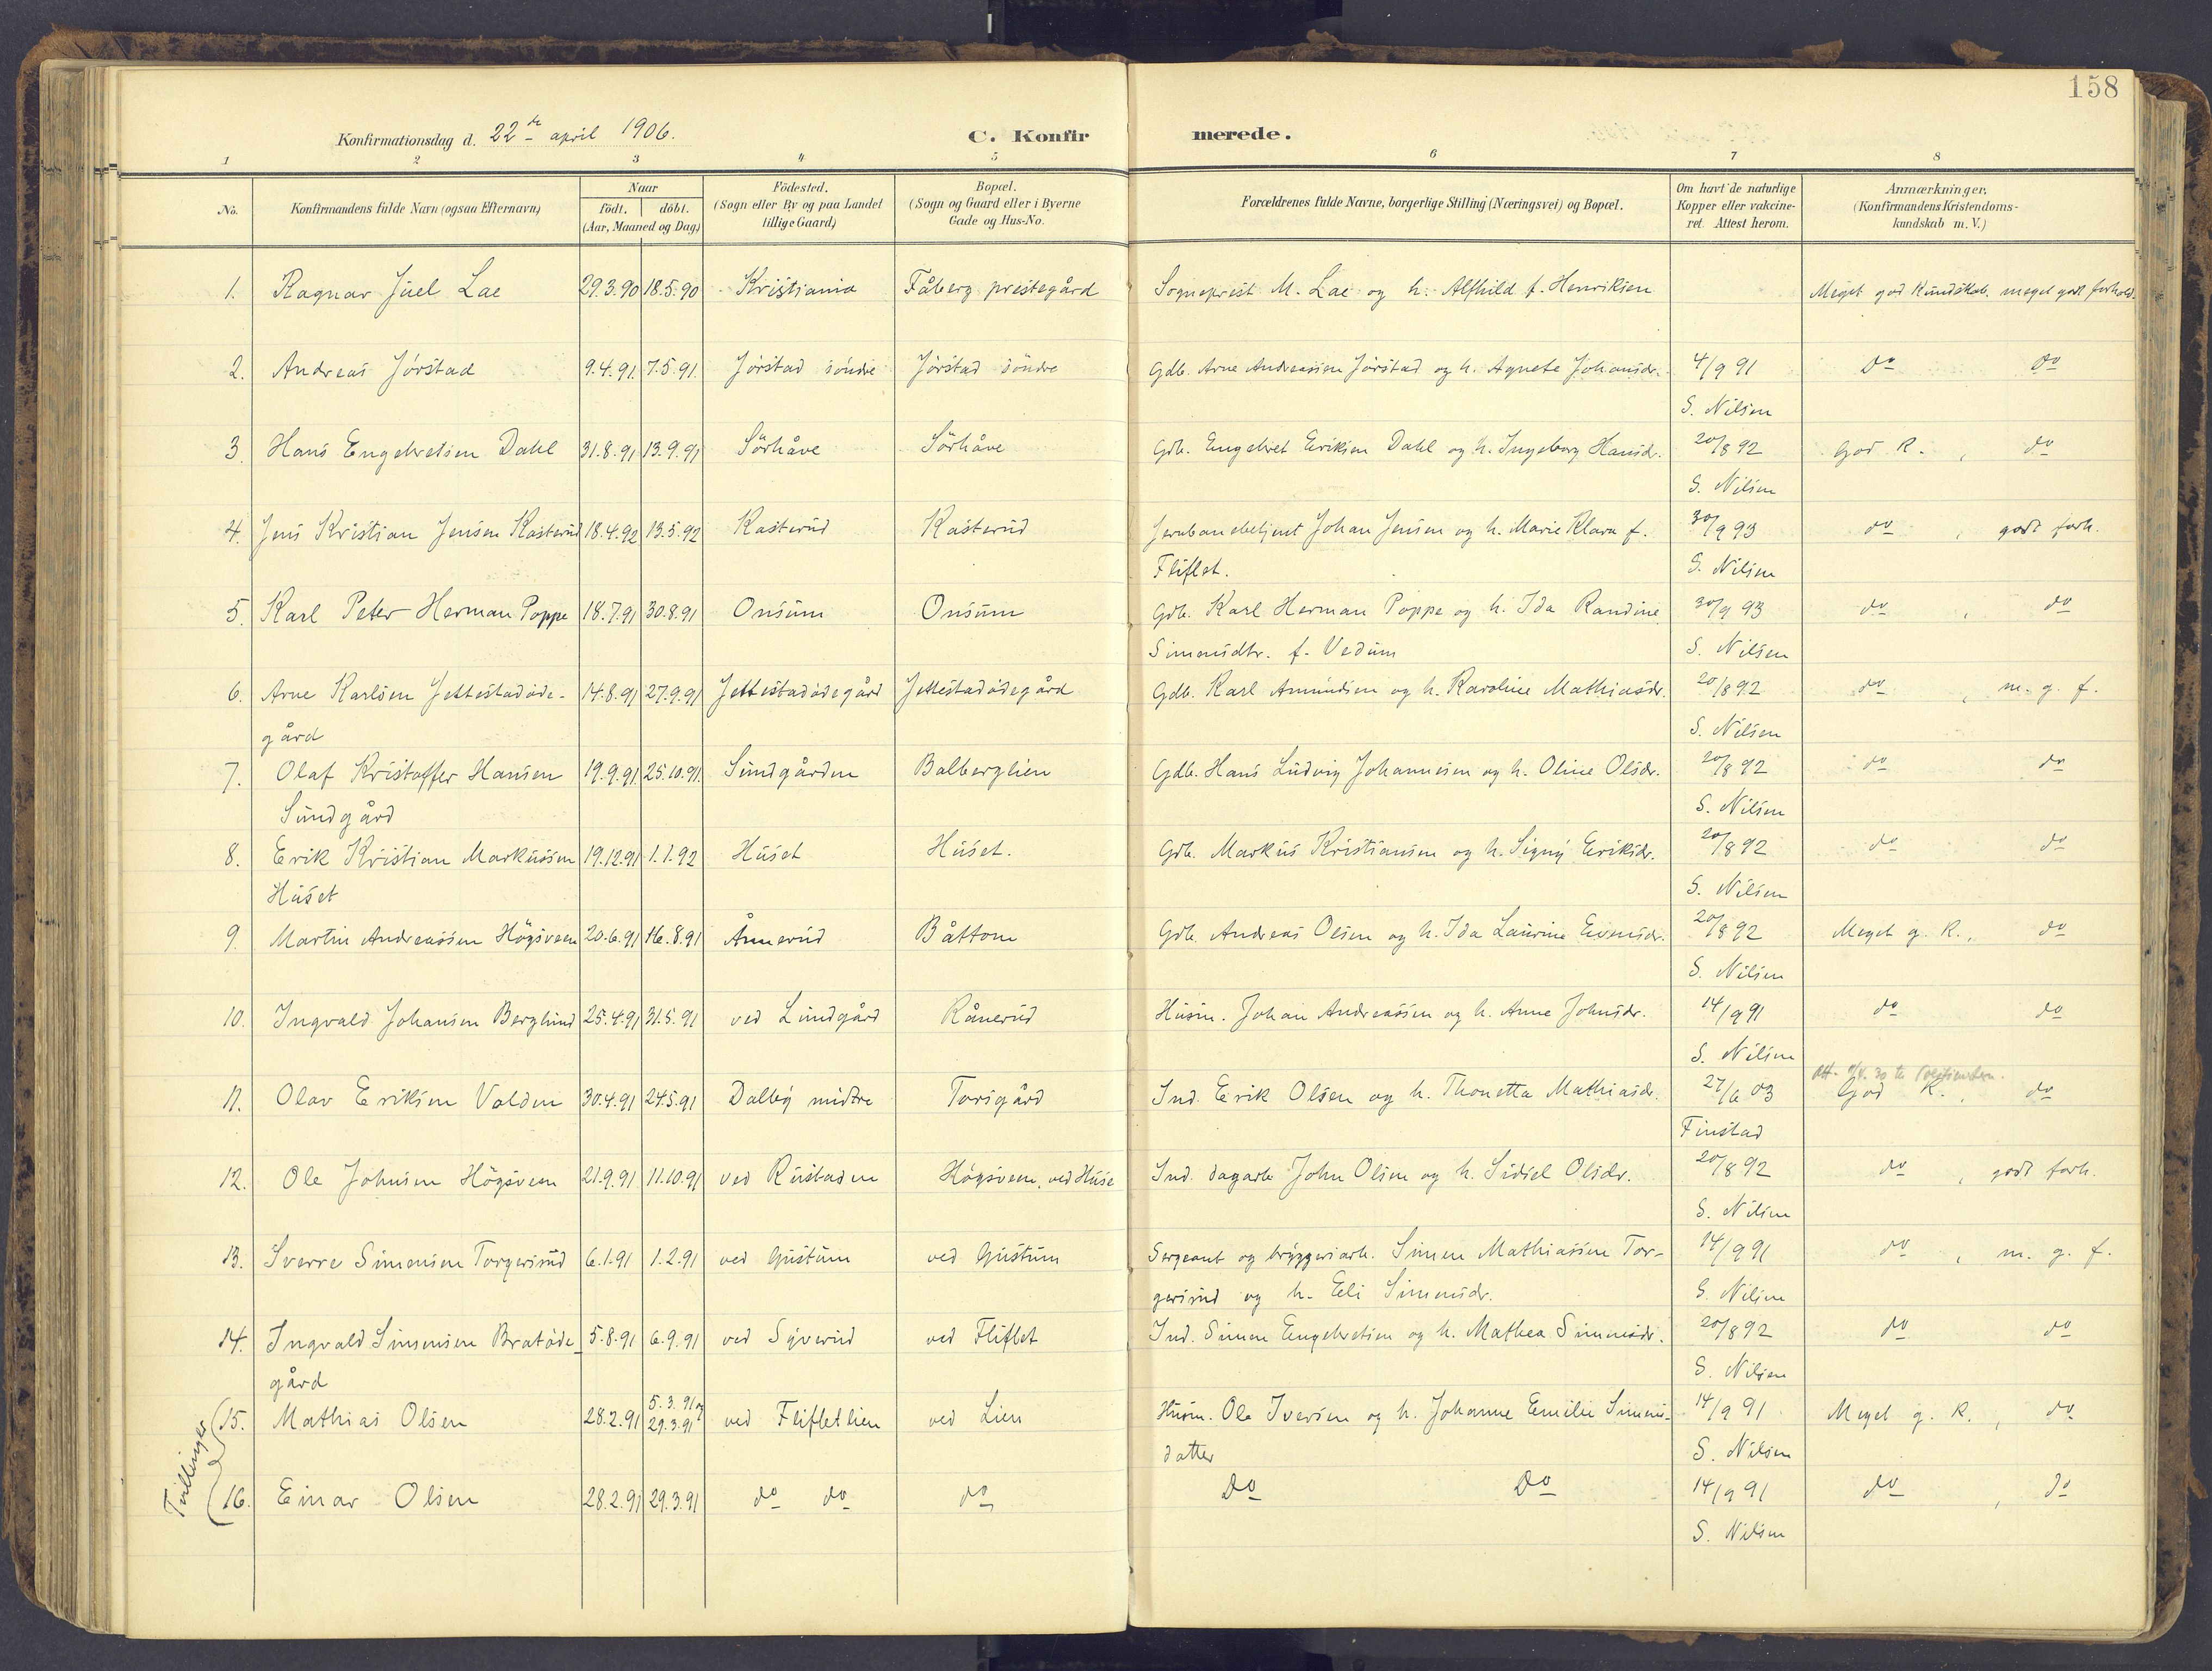 158
Konfirmationsdag d. 22de april 1906.
C. Konfirmerede.
1 2 3 4 5 6 7 8
No.
Konfirmandens fulde Navn (ogsaa Efternavn)
Naar
födt. döbt.
(Aar, Maaned og Dag)
Födested.
(Sogn eller By og paa Landet
tillige Gaard)
Bopæl.
(Sogn og Gaard eller i Byerne
Gade og Hus-No.
Forældrenes fulde Navne, borgerlige Stilling (Næringsvei) og Bopæl.
Om havt de naturlige
Kopper eller vakcine-
ret. Attest herom.
Anmærkninger,
(Konfirmandens Kristendoms-
kundskab m. V.)
1. Ragnar Juel Lae 29.3.90 18.5.90 Kristiania Fåberg prestegård Sogneprest M. Lae og h. Alfhild f. Henriksen Meget god Kundskab, meget godt forhold.
2. Andreas Jörstad 9.4.91. 7.5.91 Jörstad söndre Jörstad söndre Gdb. Arne Andreassen Jörstad og h. Agnete Johansdr. 4/9 91 Do Do
S. Nilsen
3. Hans Engebretsen Dahl 31.8.91 13.9.91 Sörhåve Sörhåve Gdb. Engebret Eriksen Dahl og h. Ingeborg Hansdr. 20/8 92 God K. , do
S. Nilsen
4. Jens Kristian Jensen Kasterud 18.4.92 13.5.92 Kasterud Kasterud Jernbanebetjent Johan Jensen og h. Marie Klara f. 30/9 93 do , godt forh.
Fliflet. S. Nilsen
5. Karl Peter Herman Poppe 18.7.91 30.8.91 Onsum Onsum Gdb. Karl Herman Poppe og h. Ida Randine 30/9 93 do , do
Simensdtr. f. Vedum S. Nilsen
6. Arne Karlsen Jettestadöde- 14.8.91 27.9.91 Jettestadödegård Jettestadödegård Gdb. Karl Amundsen og h. Karoline Mathiasdr. 20/8 92 do , m. g. f.
gård S. Nilsen
7. Olaf Kristoffer Hansen 19.9.91 25.10.91 Sundgården Balberglien Gdb. Hans Ludvig Johannesen og h. Oline Olsdr. 20/8 92 do do
Sundgård S. Nilsen
8. Erik Kristian Markussen 19.12.91 1.1.92 Huset Huset. Gdb. Markus Kristiansen og h. Signy Eriksdr. 20/8 92 do do
Huset S. Nilsen
9. Martin Andreassen Högsveen 20.6.91 16.8.91 Annerud Båttom Gdb. Andreas Olsen og h. Ida Laurine Evensdr. 20/8 92 Meget g. K., do
S. Nilsen
10. Ingvald Johansen Berglund 25.4.91 31.5.91 ved Lundgård Rånerud Husm. Johan Andreassen og h. Anne Johnsdr. 14/9 91 do do
S. Nilsen
11. Olav Eriksen Volden 30.4.91 24.5.91 Dalby midtre Torsgård Ind. Erik Olsen og h. Thonetta Mathiasdr. 27/6 03 God K. , do
Finstad
12. Ole Johnsen Högsveen 21.9.91 11.10.91 ved Rustaden Högsveen, ved Huse Ind. dagarb. John Olsen og h. Sidsel Olsdr. 20/8 92 do , godt forh.
S. Nilsen
13. Sverre Simensen Torgersrud 6.1.91 1.2.91 ved Gustum ved Gustum Sergeant og bryggeriarb. Simen Mathiassen Tor- 14/9 91 do , m. g. f.
gersrud og h. Eli Simensdr. S. Nilsen
14. Ingvald Simensen Bratöde- 5.8.91 6.9.91 ved Syverud ved Fliflet Ind. Simen Engebretsen og h. Mathea Simensdr. 20/8 92 do do
gård S. Nilsen
Tvillinger
15. Mathias Olsen 28.2.91 5.3.91 og 29.3.91 ved Flifletlien ved Lien Husm. Ole Iversen og h. Johanne Emilie Simens- 14/9 91 Meget g. K. , do
datter S. Nilsen
16. Einar Olsen 28.2.91 29.3.91 do do do Do Do 14/9 91 do , do
S. Nilsen